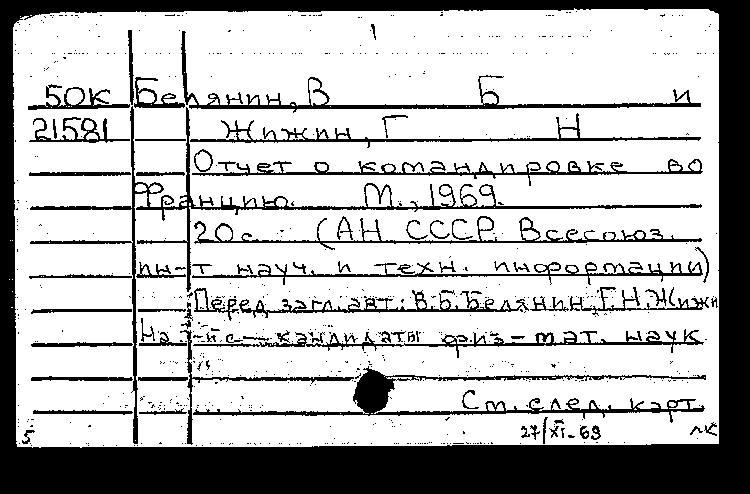 1
50К Белянин, В Б и
21581 Жижин, Г Н
Отчет о командировке во
Францию. М., 1969.
20 с. (АН СССР. Всесоюз.
ин-т науч. и техн. информации)
Перед загл. авт.: В.Б. Белянин, Г.Н. Жижи
На 3-й с. — кандидаты физ-мат. наук
См. след. карт.
5 27/XI-69 лк